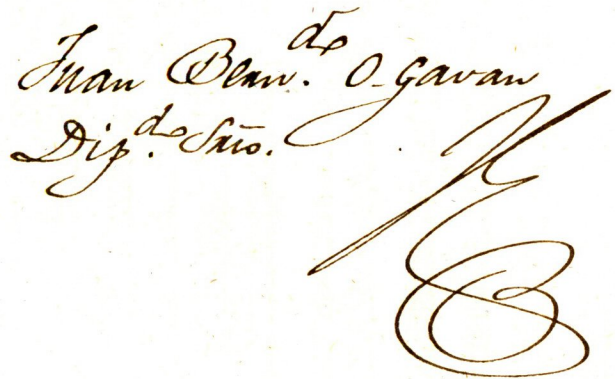 Juan Bern.do O-Gavan
Dip.do Srio.